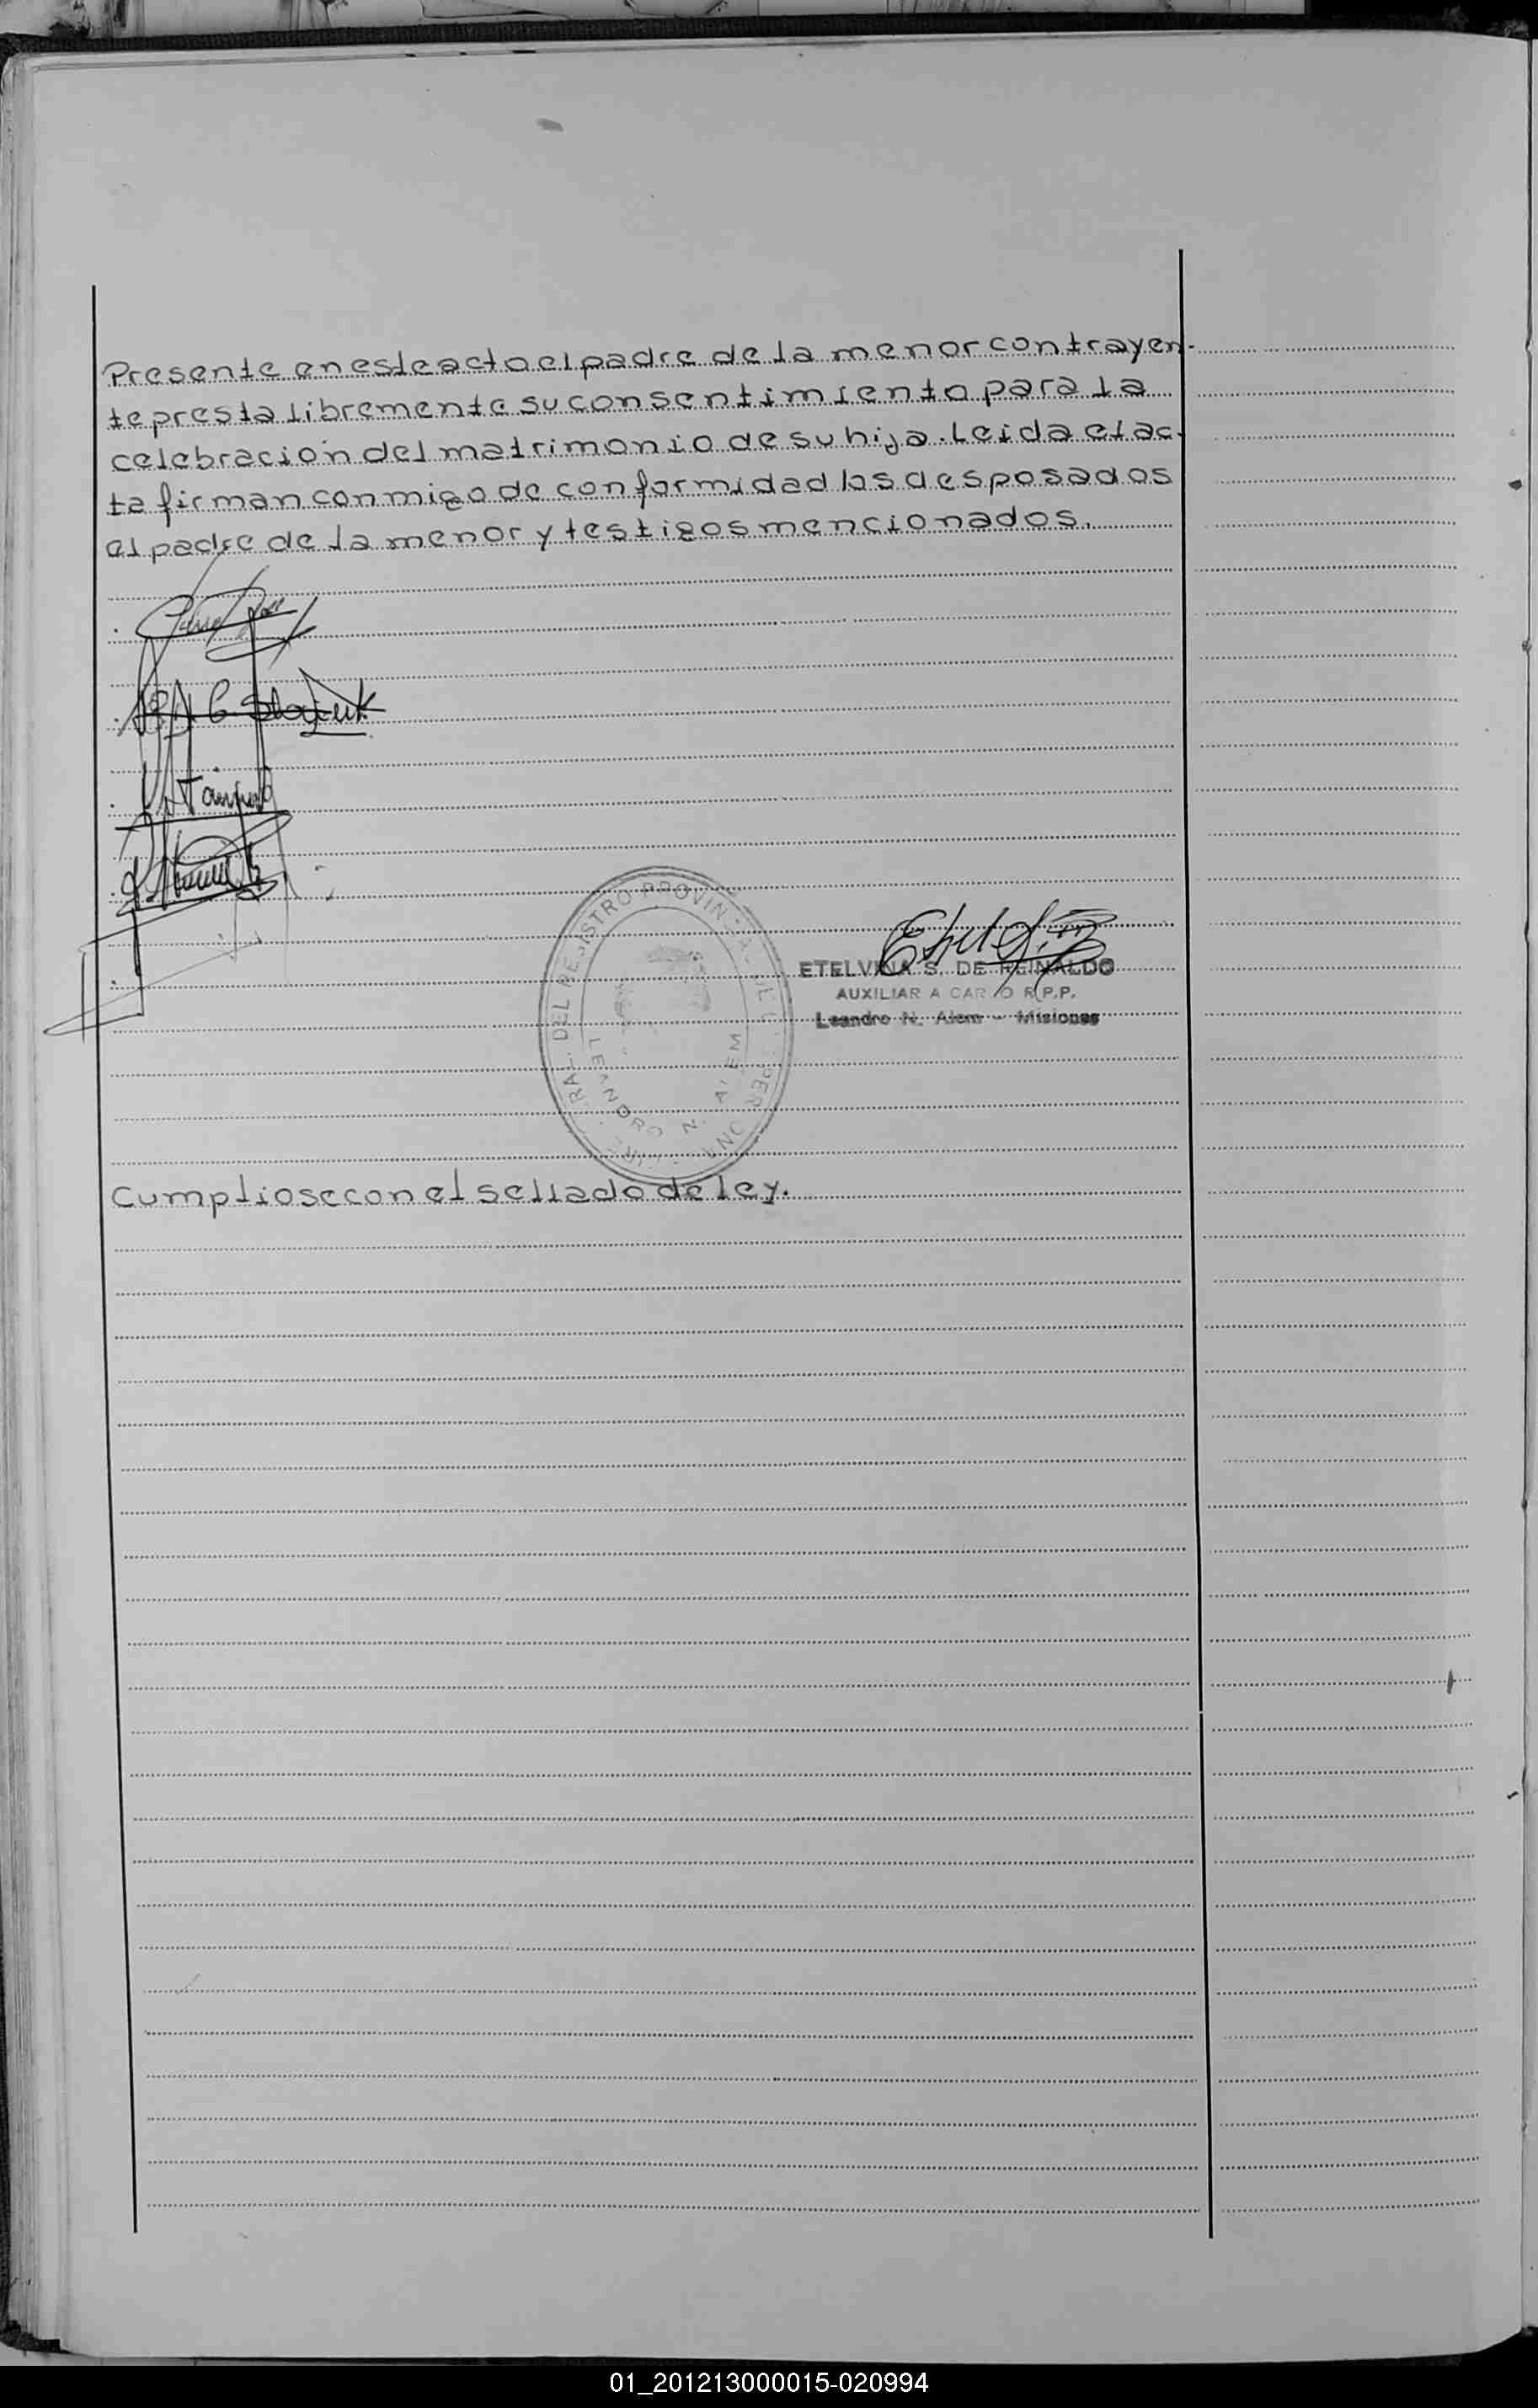 Presente en este acto el padre de la menor contrayen-
te presta libremente su consentimiento para la
celebración del matrimonio de su hija. Leida el ac-
ta firman conmigo de conformidad los desposados
el padre de la menor y testigos mencionados.
DEL REGISTRO PROVINCIAL
LEANDRO N. ALEM
ETELVINA S. DE REINALDO
AUXILIAR A CARGO R.P.P.
Leandro N. Alem - Misiones
Cumpliose con el sellado de ley.
01_201213000015-020994